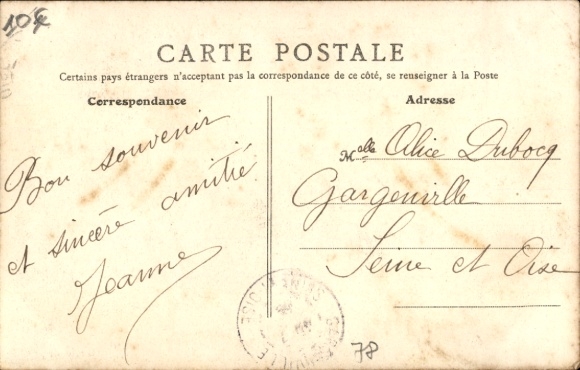 10€
CARTE POSTALE
Certains pays étrangers n'acceptant pas la correspondance de ce côté, se renseigner à la Poste
Correspondance
Bon souvenir
et sincère amitié
Jeanne
Adresse
Melle Alice Dubocq
Gargenville
Seine et Oise
78